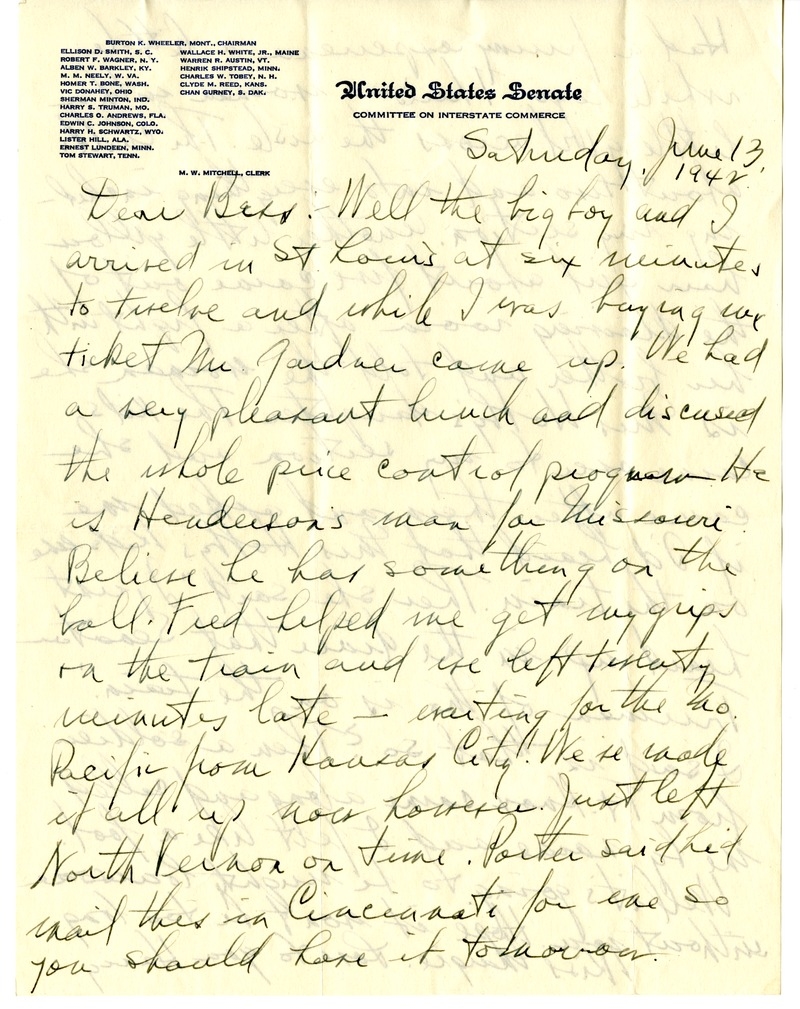 BURTON K. WHEELER, MONT., CHAIRMAN
ELLISON D. SMITH, S. C.
ROBERT F. WAGNER, N. Y.
ALBEN W. BARKLEY, KY.
M. M. NEELY, W. VA.
HOMER T. BONE, WASH.
VIC DONAHEY, OHIO
SHERMAN MINTON, IND.
HARRY S. TRUMAN, MO.
CHARLES O. ANDREWS, FLA.
EDWIN C. JOHNSON, COLO.
HARRY H. SCHWARTZ, WYO.
LISTER HILL, ALA.
ERNEST LUNDEEN, MINN.
TOM STEWART, TENN.
WALLACE H. WHITE, JR., MAINE
WARREN R. AUSTIN, VT.
HENRIK SHIPSTEAD, MINN.
CHARLES W. TOBEY, N. H.
CLYDE M. REED, KANS.
CHAN GURNEY, S. DAK.
M. W. MITCHELL, CLERK
United States Senate
COMMITTEE ON INTERSTATE COMMERCE
Saturday, June 13,
1942.
Dear Bess:- Well the big boy and I
arrived in St Louis at six minutes
to twelve and while I was buying my
ticket Mr. Gardner came up. We had
a very pleasant lunch and discused
the whole price control program He
is Henderson's man for Missouri.
Believe he has something on the
ball. Fred helped me get my grips
on the train and we left twenty
minutes late - waiting for the Mo.
Pacific from Kansas City! We've made
it all up now however. Just left
North Vernon on time. Porter said he'd
mail this in Cincinnati for me so
you should have it tomorrow.